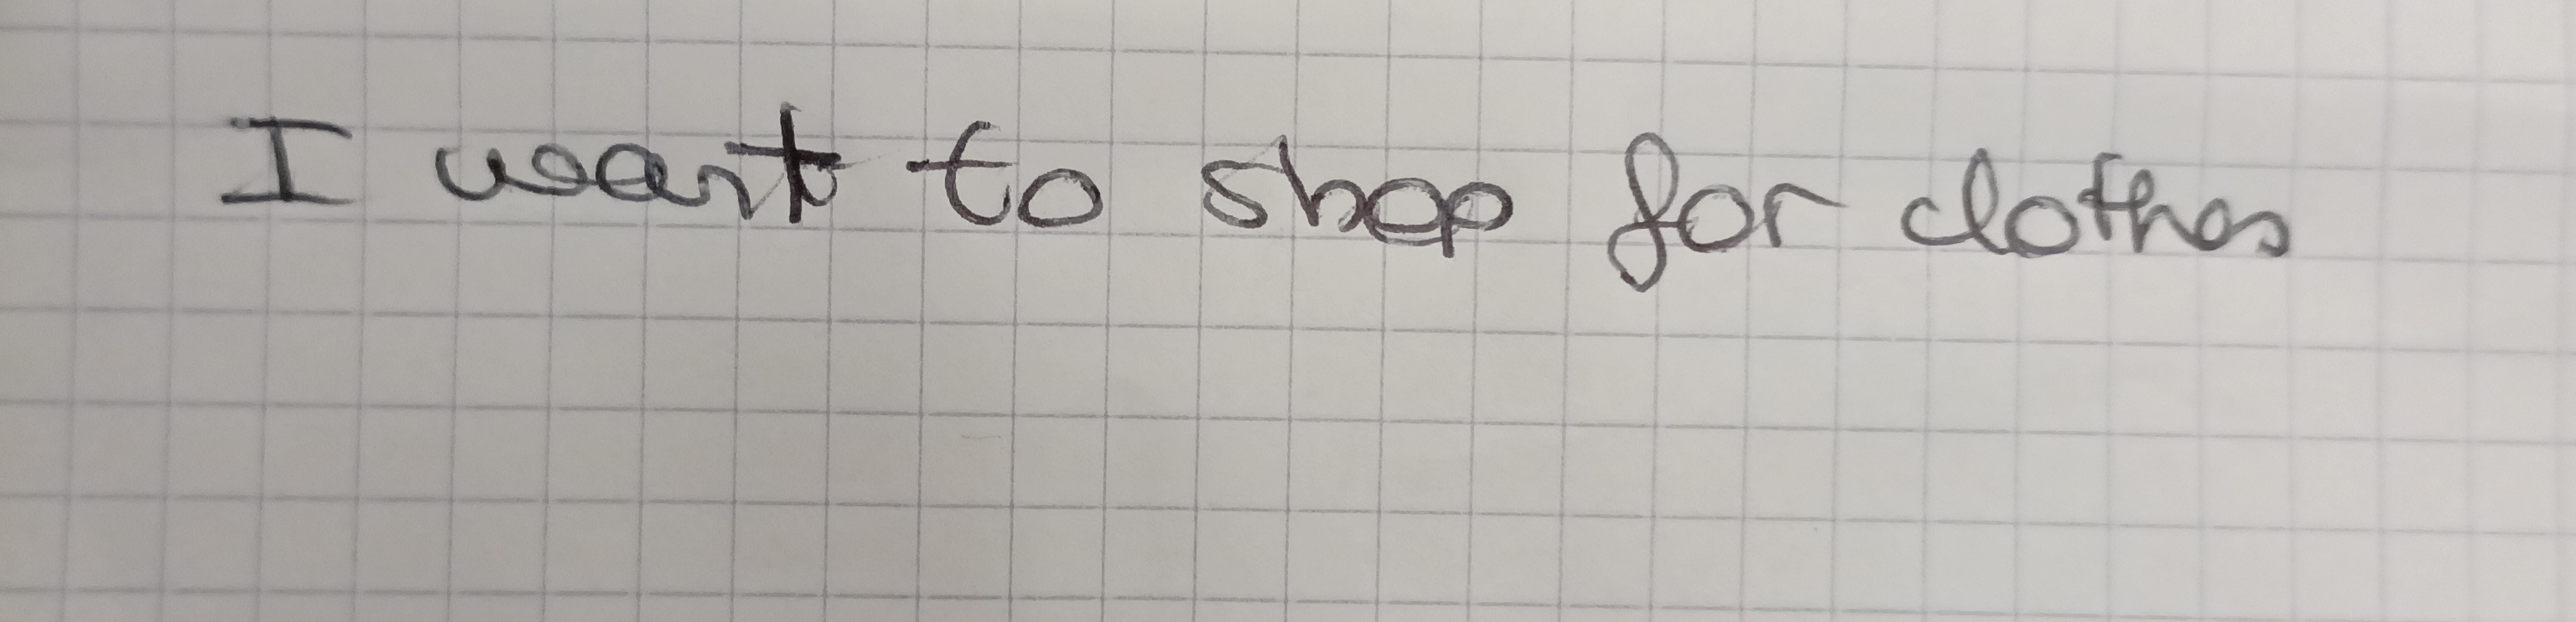 I want to shop for clothes